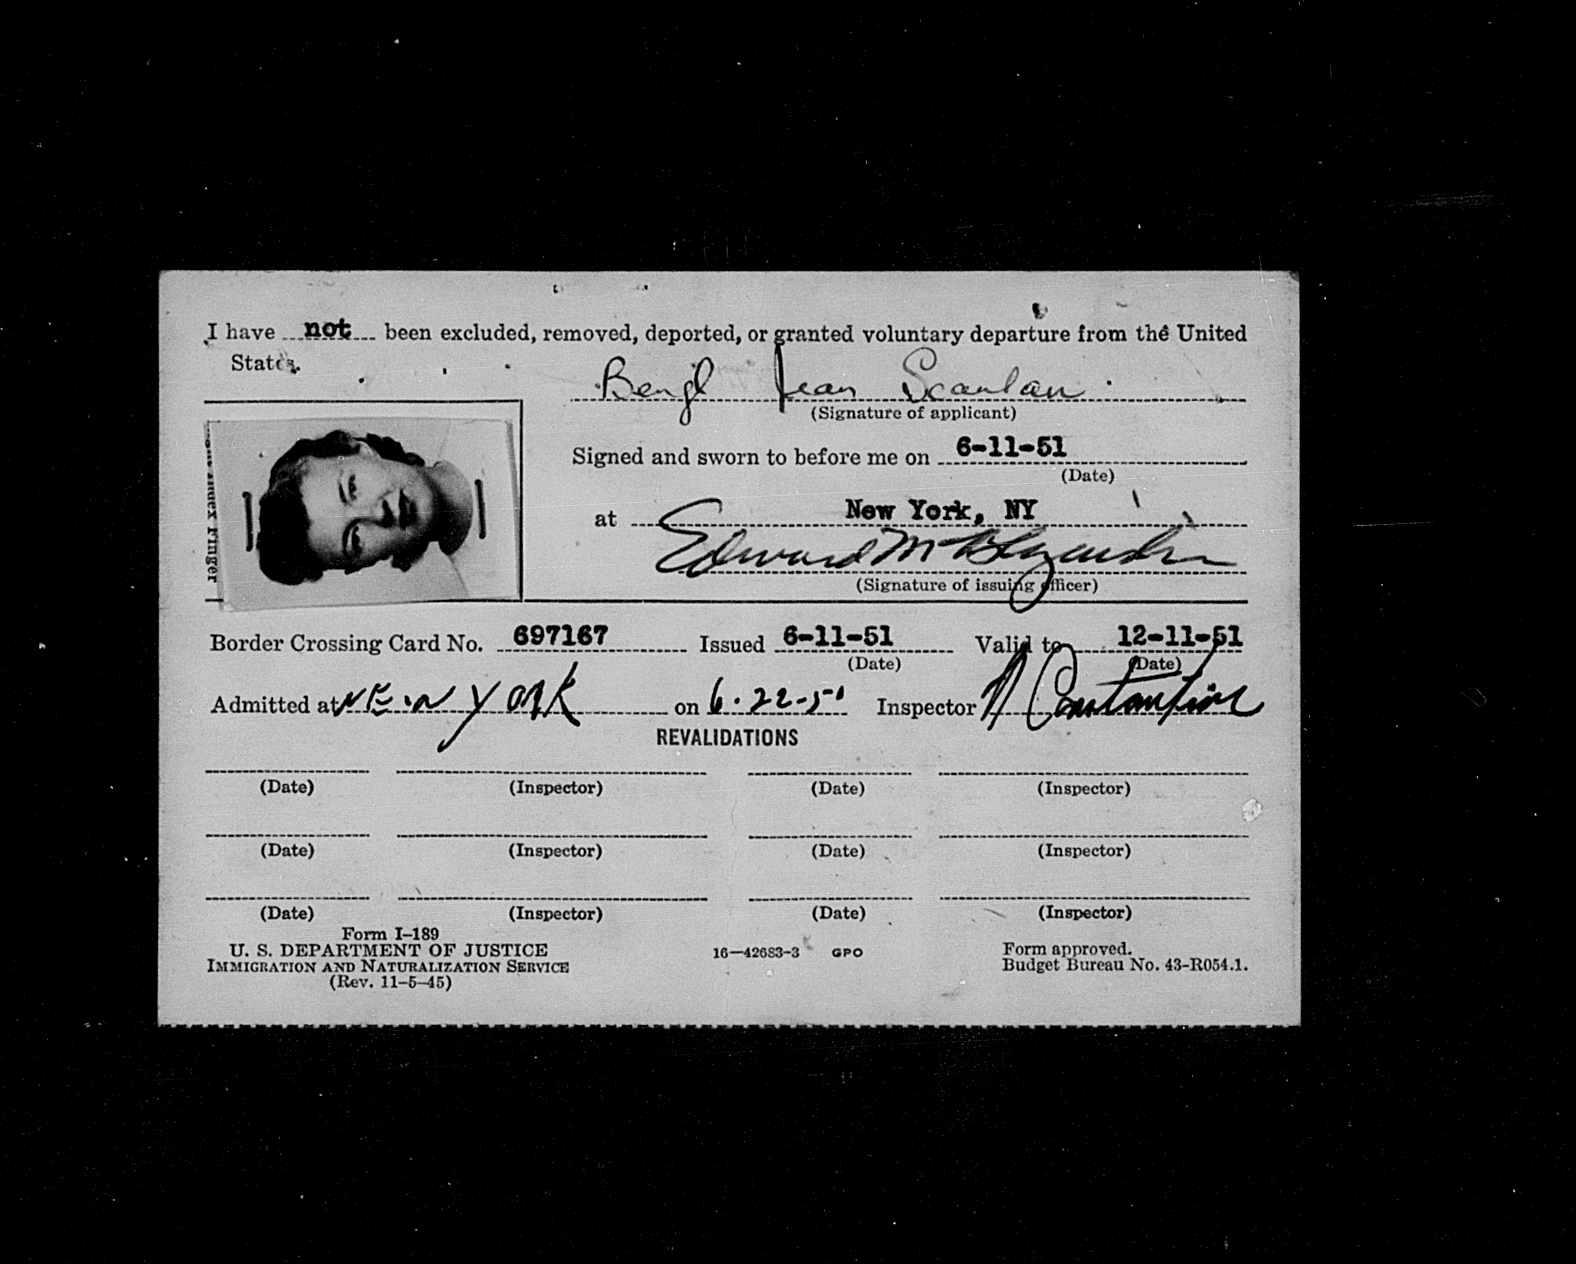 I have not been excluded, removed, deported, or granted voluntary departure from the United
States.
Beryl Jean Scanlan
(Signature of applicant)
Index Finger
Signed and sworn to before me on 6-11-51
(Date)
at New York, NY
Edward
(Signature of issuing officer)
Border Crossing Card No. 697167 Issued 6-11-51 Valid to 12-11-51
(Date) (Date)
Admitted at NEW YORK on 6-22-51 Inspector Constantine
REVALIDATIONS
(Date) (Inspector) (Date) (Inspector)
(Date) (Inspector) (Date) (Inspector)
(Date) (Inspector) (Date) (Inspector)
Form I-189
U. S. DEPARTMENT OF JUSTICE
IMMIGRATION AND NATURALIZATION SERVICE
(Rev. 11-5-45)
16—42683-3 GPO
Form approved.
Budget Bureau No. 43-R054.1.